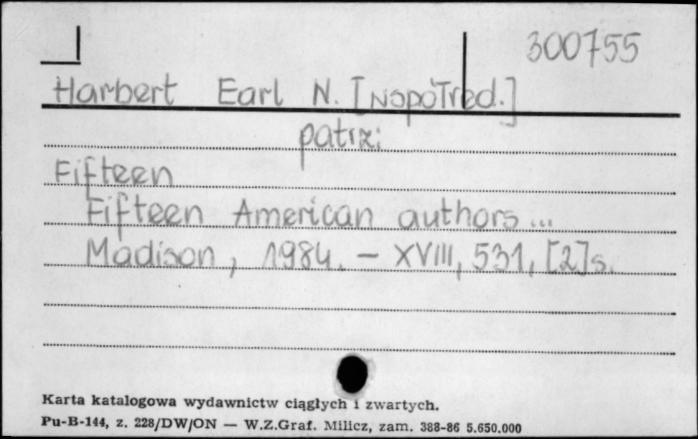 300755
Harbert Earl N. [współred.]
patrz:
Fifteen
Fifteen American authors...
Madison, 1984. — XVIII, 531, [2]s.
Karta katalogowa wydawnictw ciągłych i zwartych.
Pu-B-144, z. 228/DW/ON — W.Z.Graf. Milicz, zam. 388-86 5.650.000